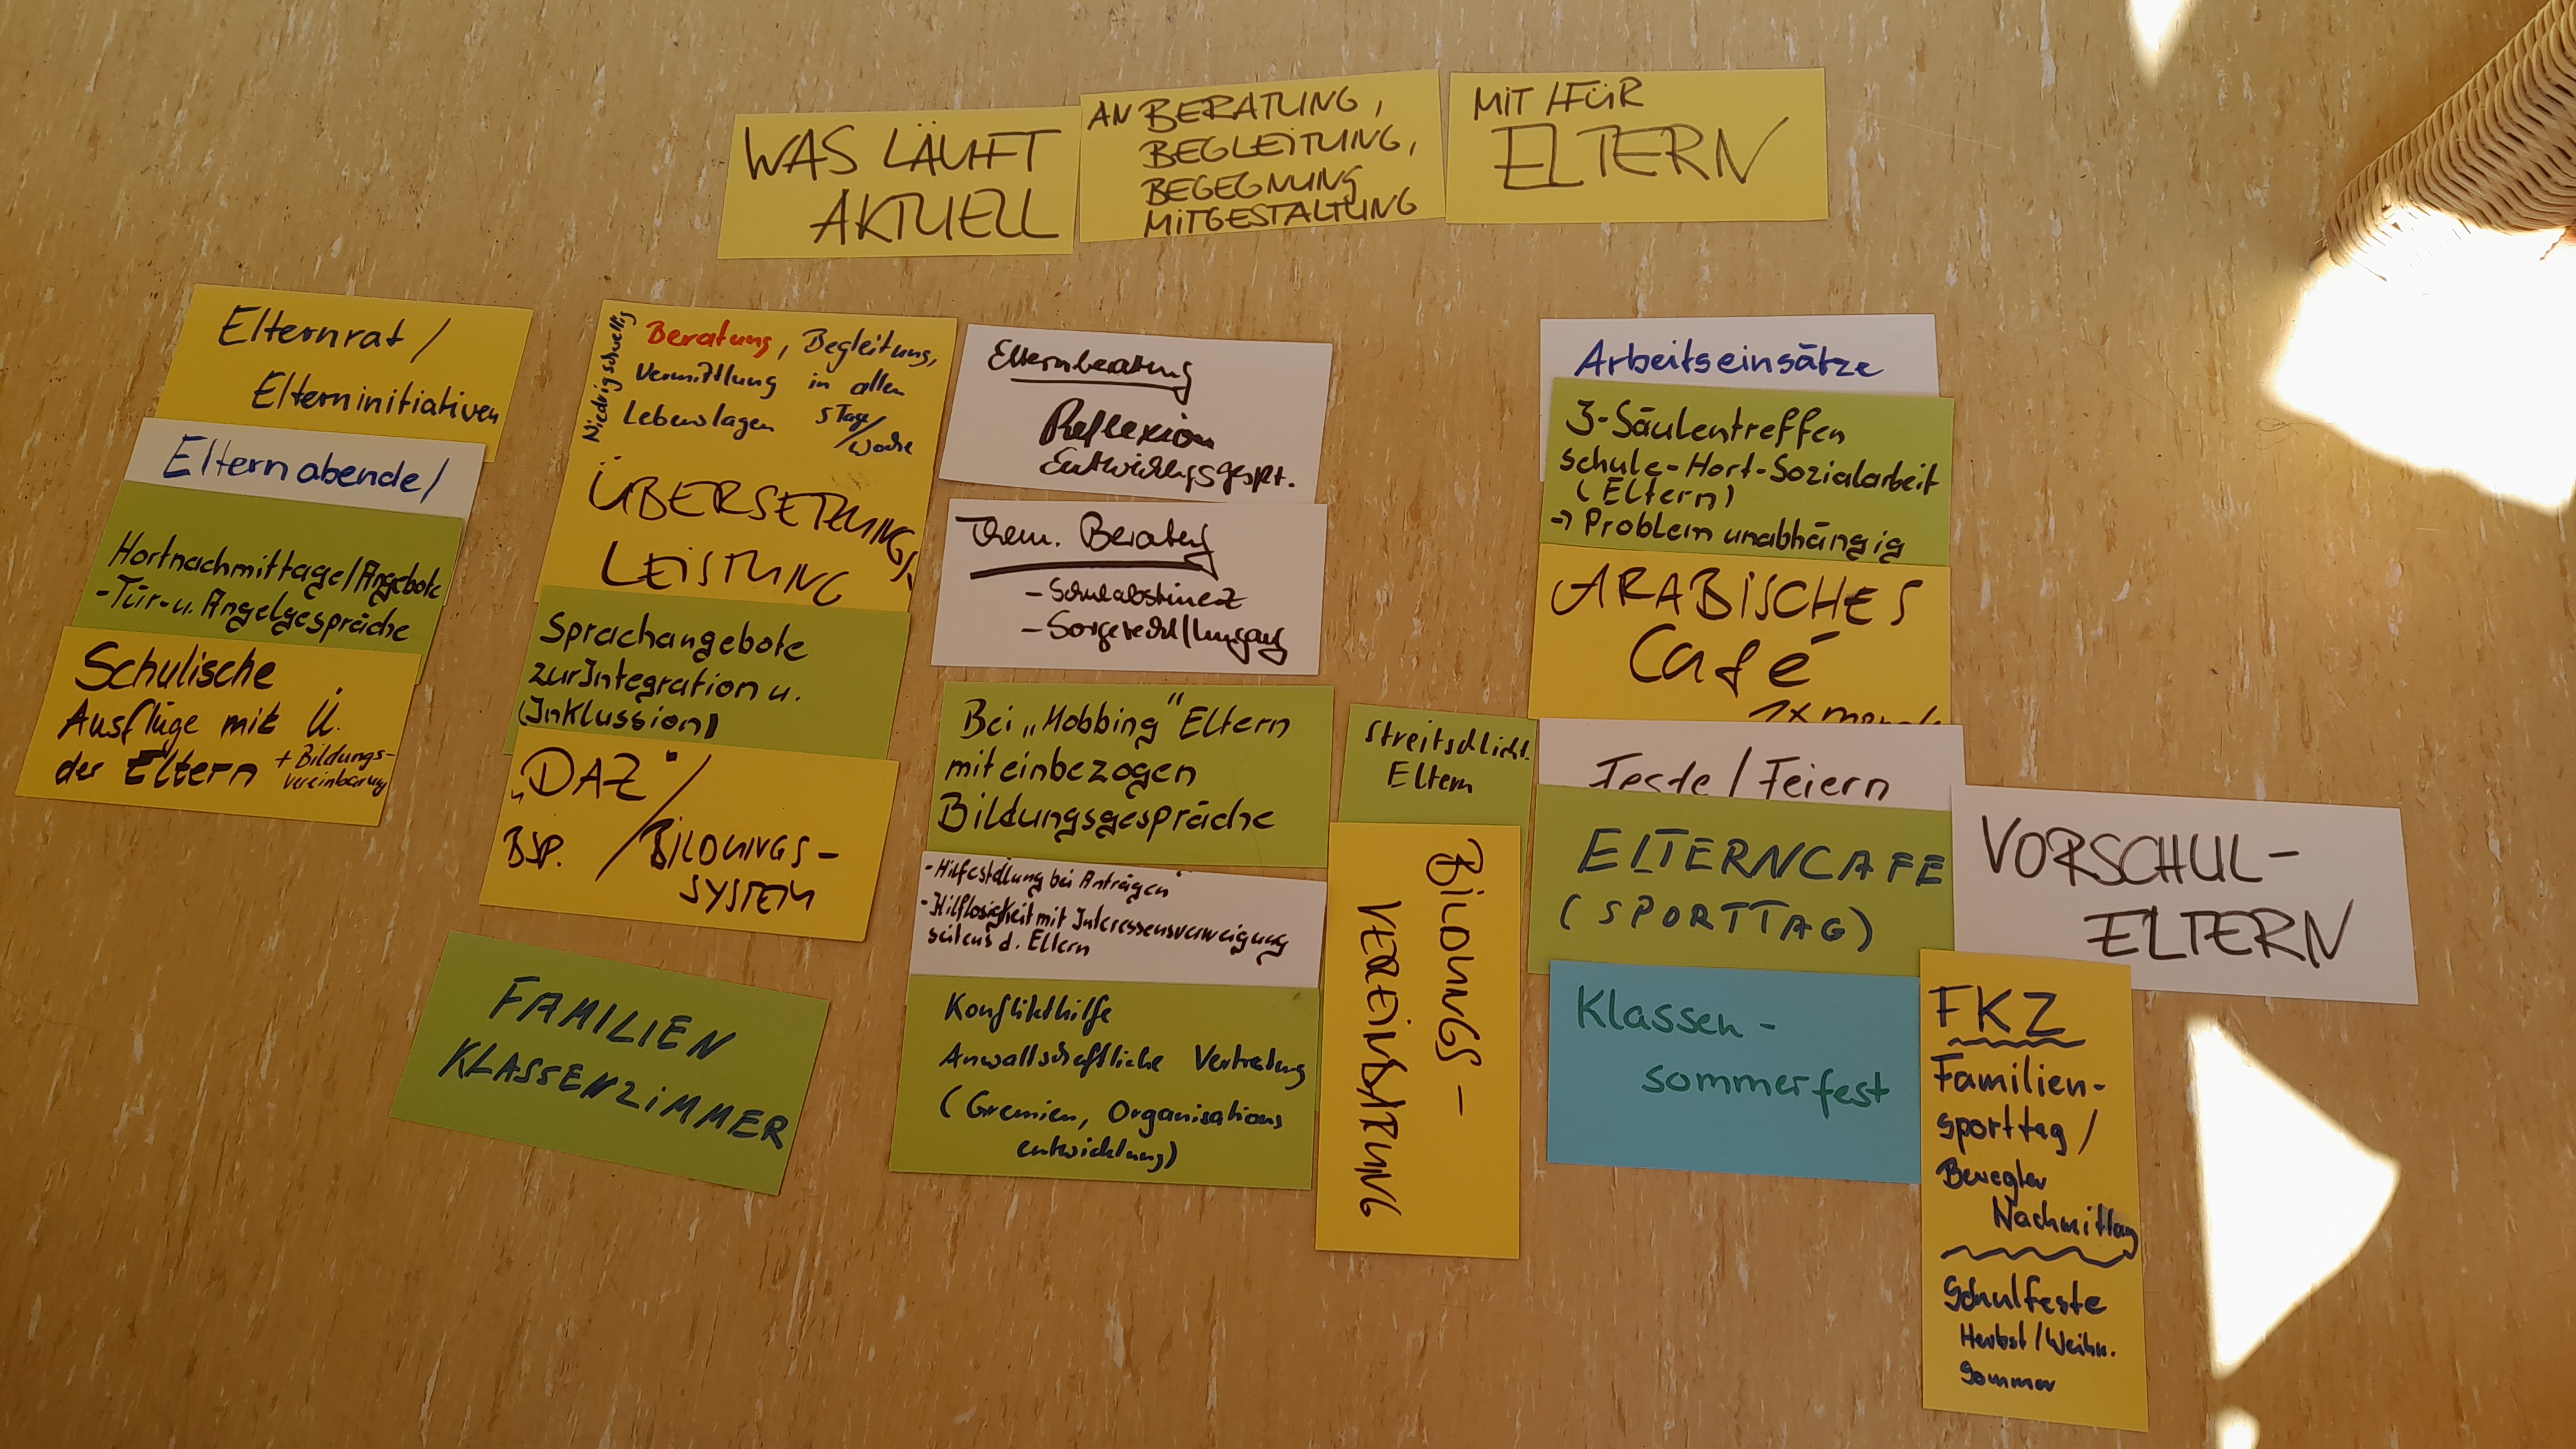 WAS LÄUFT
AKTUELL
AN BERATUNG,
BEGLEITUNG,
BEGEGNUNG
MITGESTALTUNG
MIT/FÜR
ELTERN
Elternrat /
Elterninitiativen
Elternabende/
Hortnachmittage/Angebote
-Tür- u. Angelgespräche
Schulische
Ausflüge mit Ü.
der Eltern
+ Bildungs-
vereinbarung
Niedrigschwellig
Beratung, Begleitung,
Vermittlung in allen
Lebenslagen 5 Tage/
Woche
ÜBERSETZUNGS
LEISTUNG
Sprachangebote
zur Integration u.
(Inklussion)
"DAZ"/
BSP. BILDUNGS-
SYSTEM
FAMILIEN
KLASSENZIMMER
Elternberatung
Reflexion
Entwicklugsgespr.
Them. Beratung
- Schulabstinenz
- Sorgerecht/Umgang
Bei „Mobbing" Eltern
miteinbezogen
Bildungsgespräche
- Hilfestellung bei Anträgen
- Hilflosigkeit mit Interessensverweigung
seitens d. Eltern
Konflikthilfe
Anwaltschaftliche Vertretung
(Gremien, Organisations
entwicklung)
Streitschlicht.
Eltern
BILDUNGS-
VEREINBARUNG
Arbeitseinsätze
3-Säulentreffen
Schule-Hort-Sozialarbeit
(Eltern)
→ Problem unabhängig
ARABISCHES
Café
1x
Feste / Feiern
ELTERNCAFE
(SPORTTAG)
Klassen-
sommerfest
VORSCHUL-
ELTERN
FKZ
Familien-
sporttag/
Bewegter
Nachmittag
Schulfeste
Herbst/Weihn.
Sommer